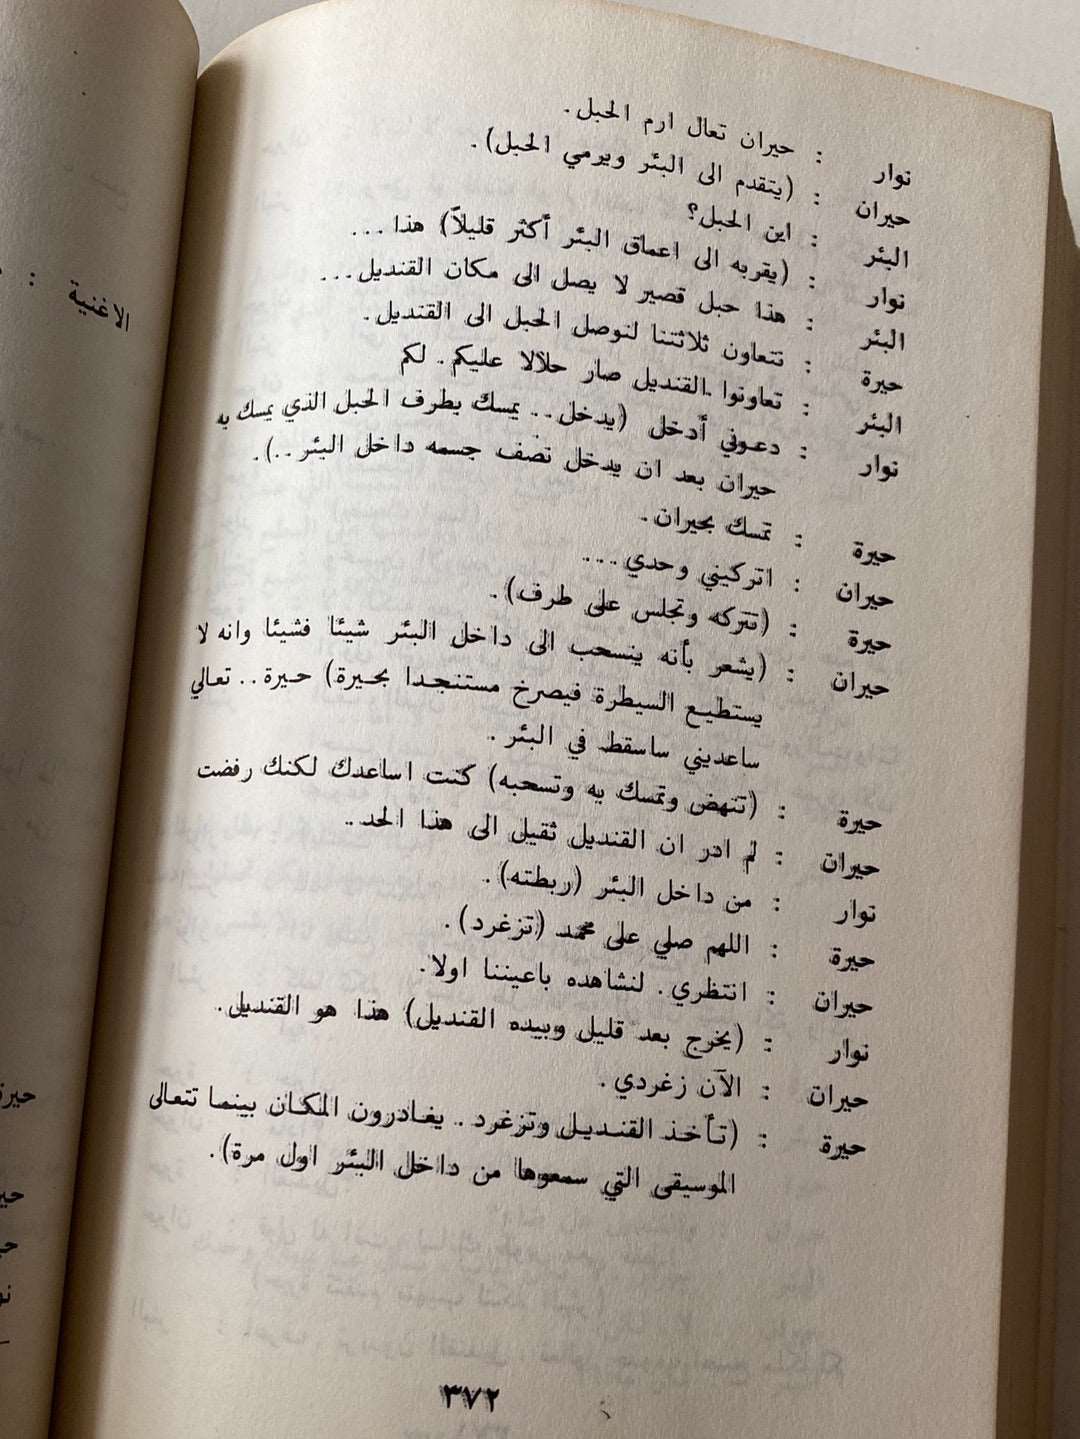 نوار : حيران تعال ارم الحبل.
حيران : (يتقدم الى البئر ويرمي الحبل).
البئر : اين الحبل؟
نوار : (يقربه الى اعماق البئر أكثر قليلاً) هذا...
البئر : هذا حبل قصير لا يصل الى مكان القنديل...
حيرة : نتعاون ثلاثتنا لنوصل الحبل الى القنديل.
البئر : تعاونوا. القنديل صار حلالا عليكم. لكم
نوار : دعوني أدخل (يدخل.. يمسك بطرف الحبل الذي يمسك به
حيران بعد ان يدخل نصف جسمه داخل البئر..).
حيرة : تمسك بحيران.
حيران : اتركيني وحدي...
حيرة : (تتركه وتجلس على طرف).
حيران : (يشعر بأنه ينسحب الى داخل البئر شيئا فشيئا وانه لا
يستطيع السيطرة فيصرخ مستنجدا بحيرة) حيرة.. تعالي
ساعديني ساسقط في البئر.
حيرة : (تنهض وتمسك به وتسحبه) كنت اساعدك لكنك رفضت
حيران : لم ادر ان القنديل ثقيل الى هذا الحد..
نوار : من داخل البئر (ربطته).
حيرة : اللهم صلي على محمد (تزغرد).
حيران : انتظري. لنشاهده باعيننا اولا.
نوار : (يخرج بعد قليل وبيده القنديل) هذا هو القنديل.
حيران : الآن زغردي.
حيرة : (تأخذ القنديل وتزغرد.. يغادرون المكان بينما تتعالى
الموسيقى التي سمعوها من داخل البئر اول مرة).
٣٧٢
الاغنية :
حيرة